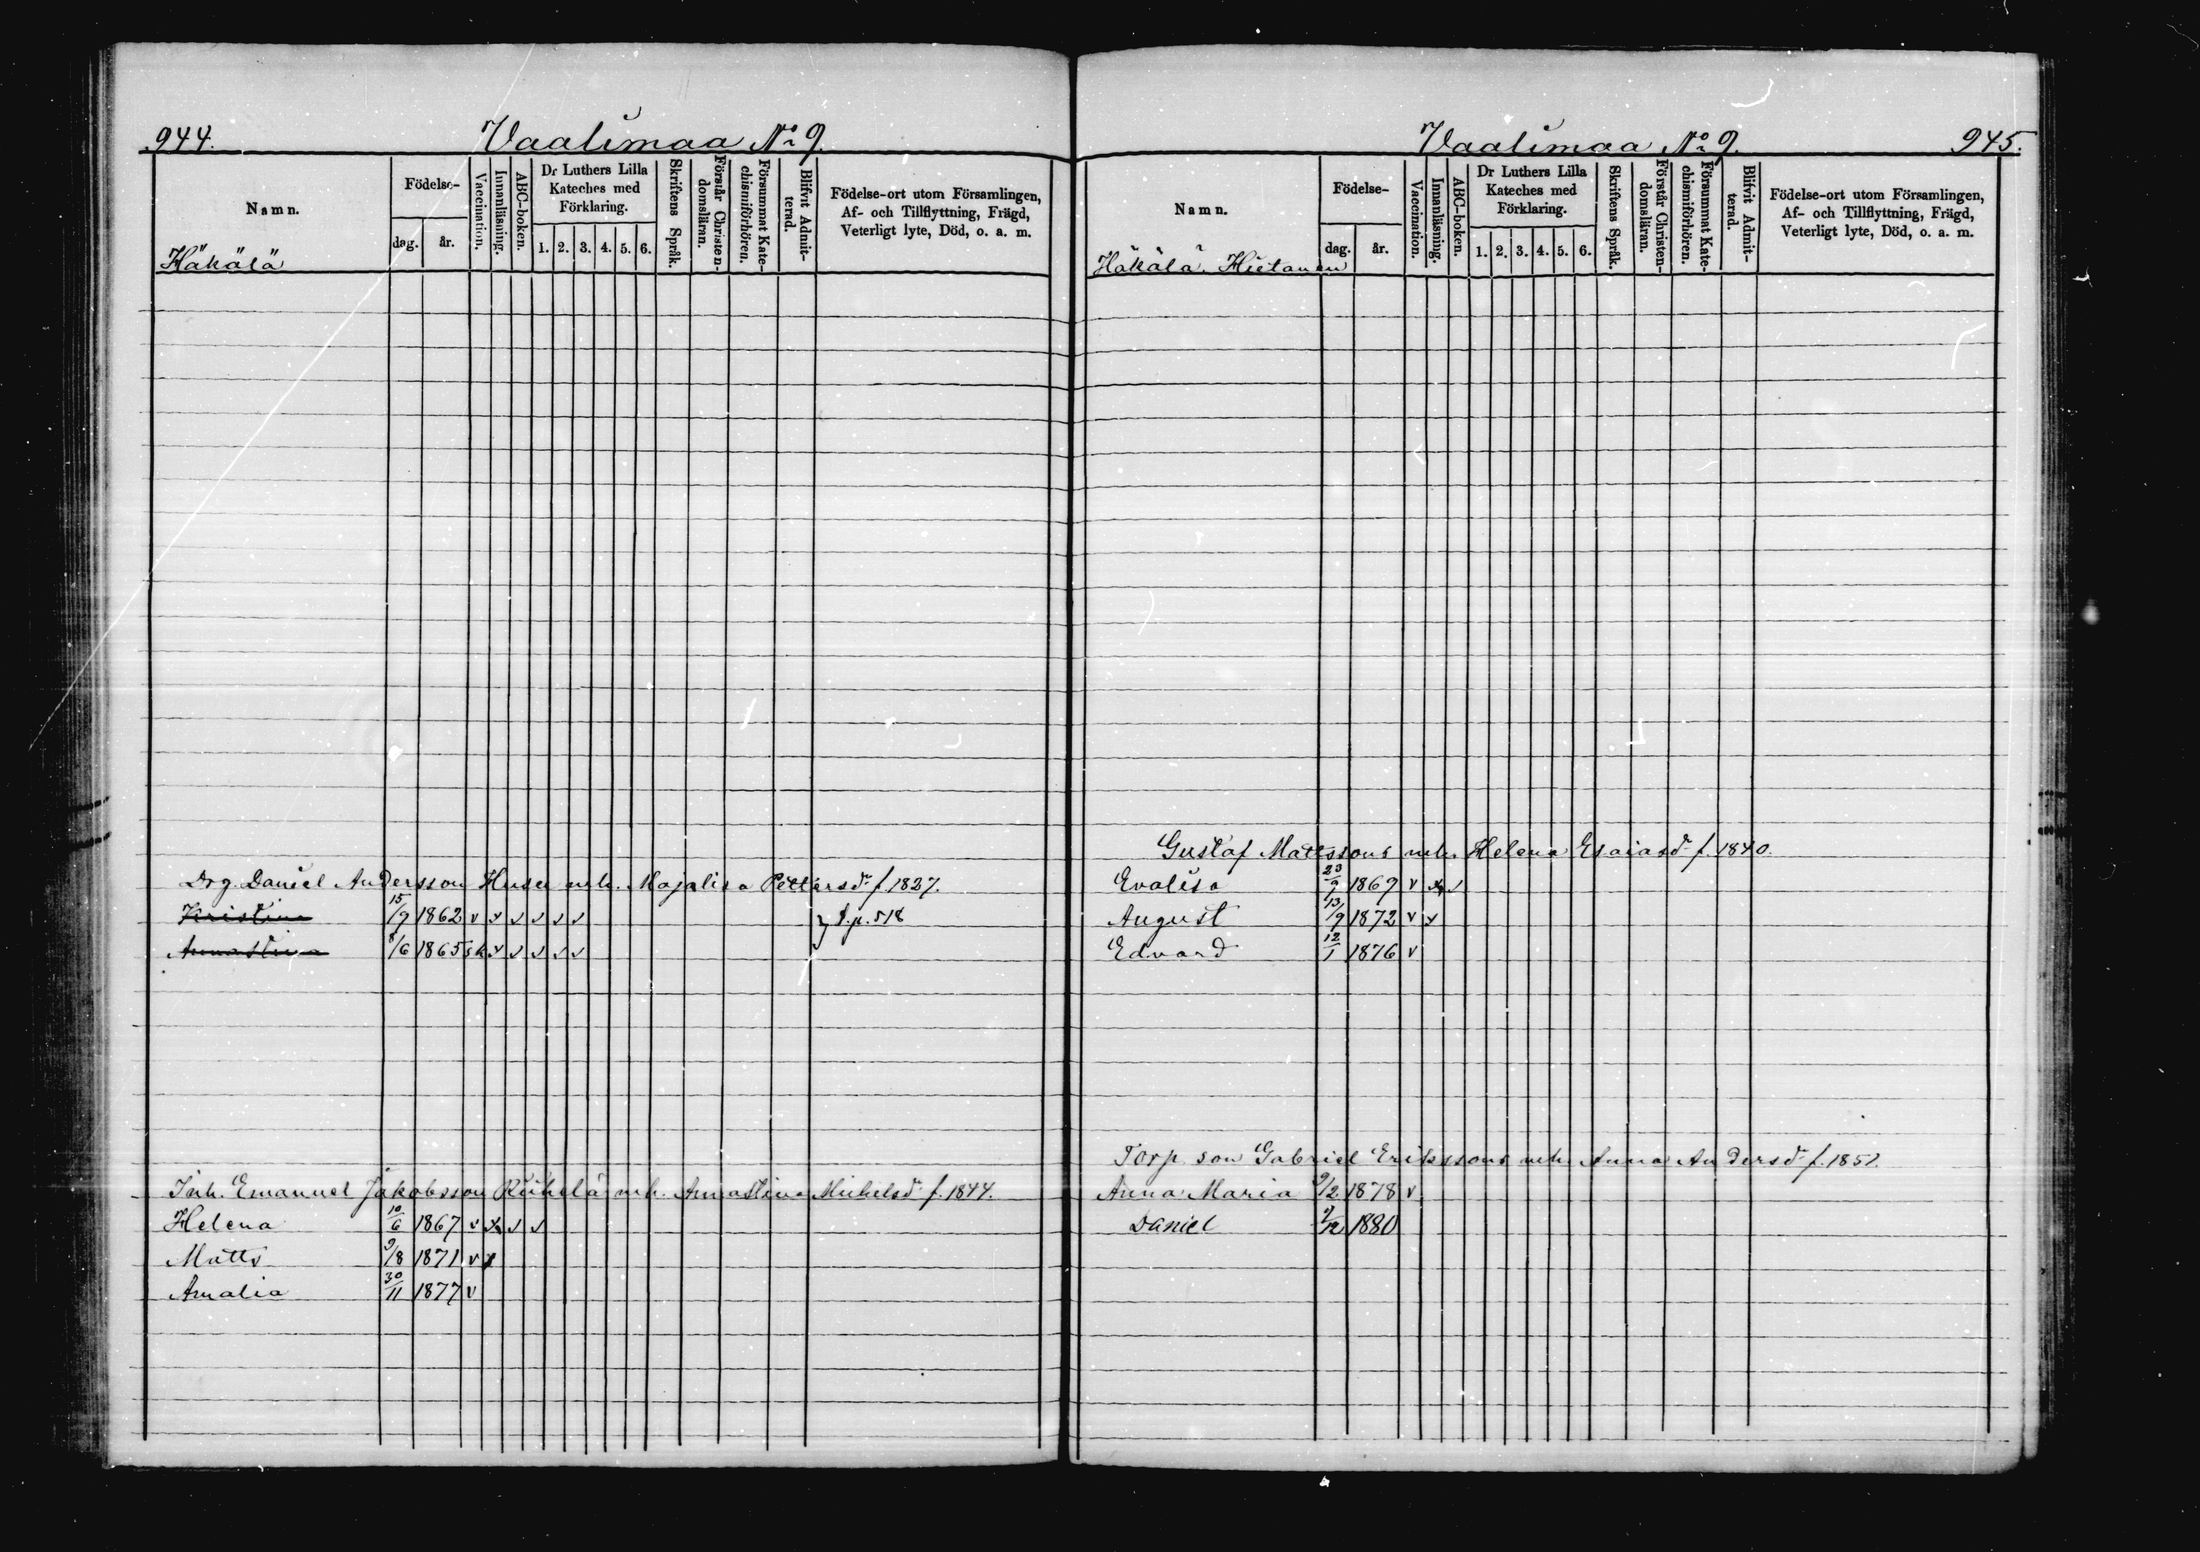 944. Vaalimaa No 9.
Namn.
Födelse-
dag. år.
Vaccination.
Innanläsning.
ABC-boken.
Dr Luthers Lilla Kateches med Förklaring.
1. 2. 3. 4. 5. 6.
Skriftens Språk.
Förstår Christendomsläran.
Försummat Katechismiförhören.
Blifvit Admitterad.
Födelse-ort utom Församlingen, Af- och Tillflyttning, Frägd, Veterligt lyte, Död, o. a. m.
Häkälä
Drg. Daniel Andersson Husu enh. Majalisa Pettersd. f. 1827.
Kristina 15/9 1862 v v v v v v } p. 518
Annastina 8/6 1865 v v v v v
Inh. Emanuel Jakobsson enh. Annastina Mickelsd. f. 1844.
Helena 10/6 1867 v v v v
Matts 9/8 1871 v v
Amalia 30/11 1877 v
Vaalimaa No 9. 945.
Namn.
Födelse-
dag. år.
Vaccination.
Innanläsning.
ABC-boken.
Dr Luthers Lilla Kateches med Förklaring.
1. 2. 3. 4. 5. 6.
Skriftens Språk.
Förstår Christendomsläran.
Försummat Katechismiförhören.
Blifvit Admitterad.
Födelse-ort utom Församlingen, Af- och Tillflyttning, Frägd, Veterligt lyte, Död, o. a. m.
Häkälä Hietanen
Gustaf Mattssons enh. Helena Esaiasd. f. 1840.
Evalisa 23/9 1869 v v v
August 13/9 1872 v v
Edvard 12/1 1876 v
Torp. son Gabriel Erikssons enh. Anna Andersd. f. 1851.
Anna Maria 9/2 1878 v
Daniel /12 1880